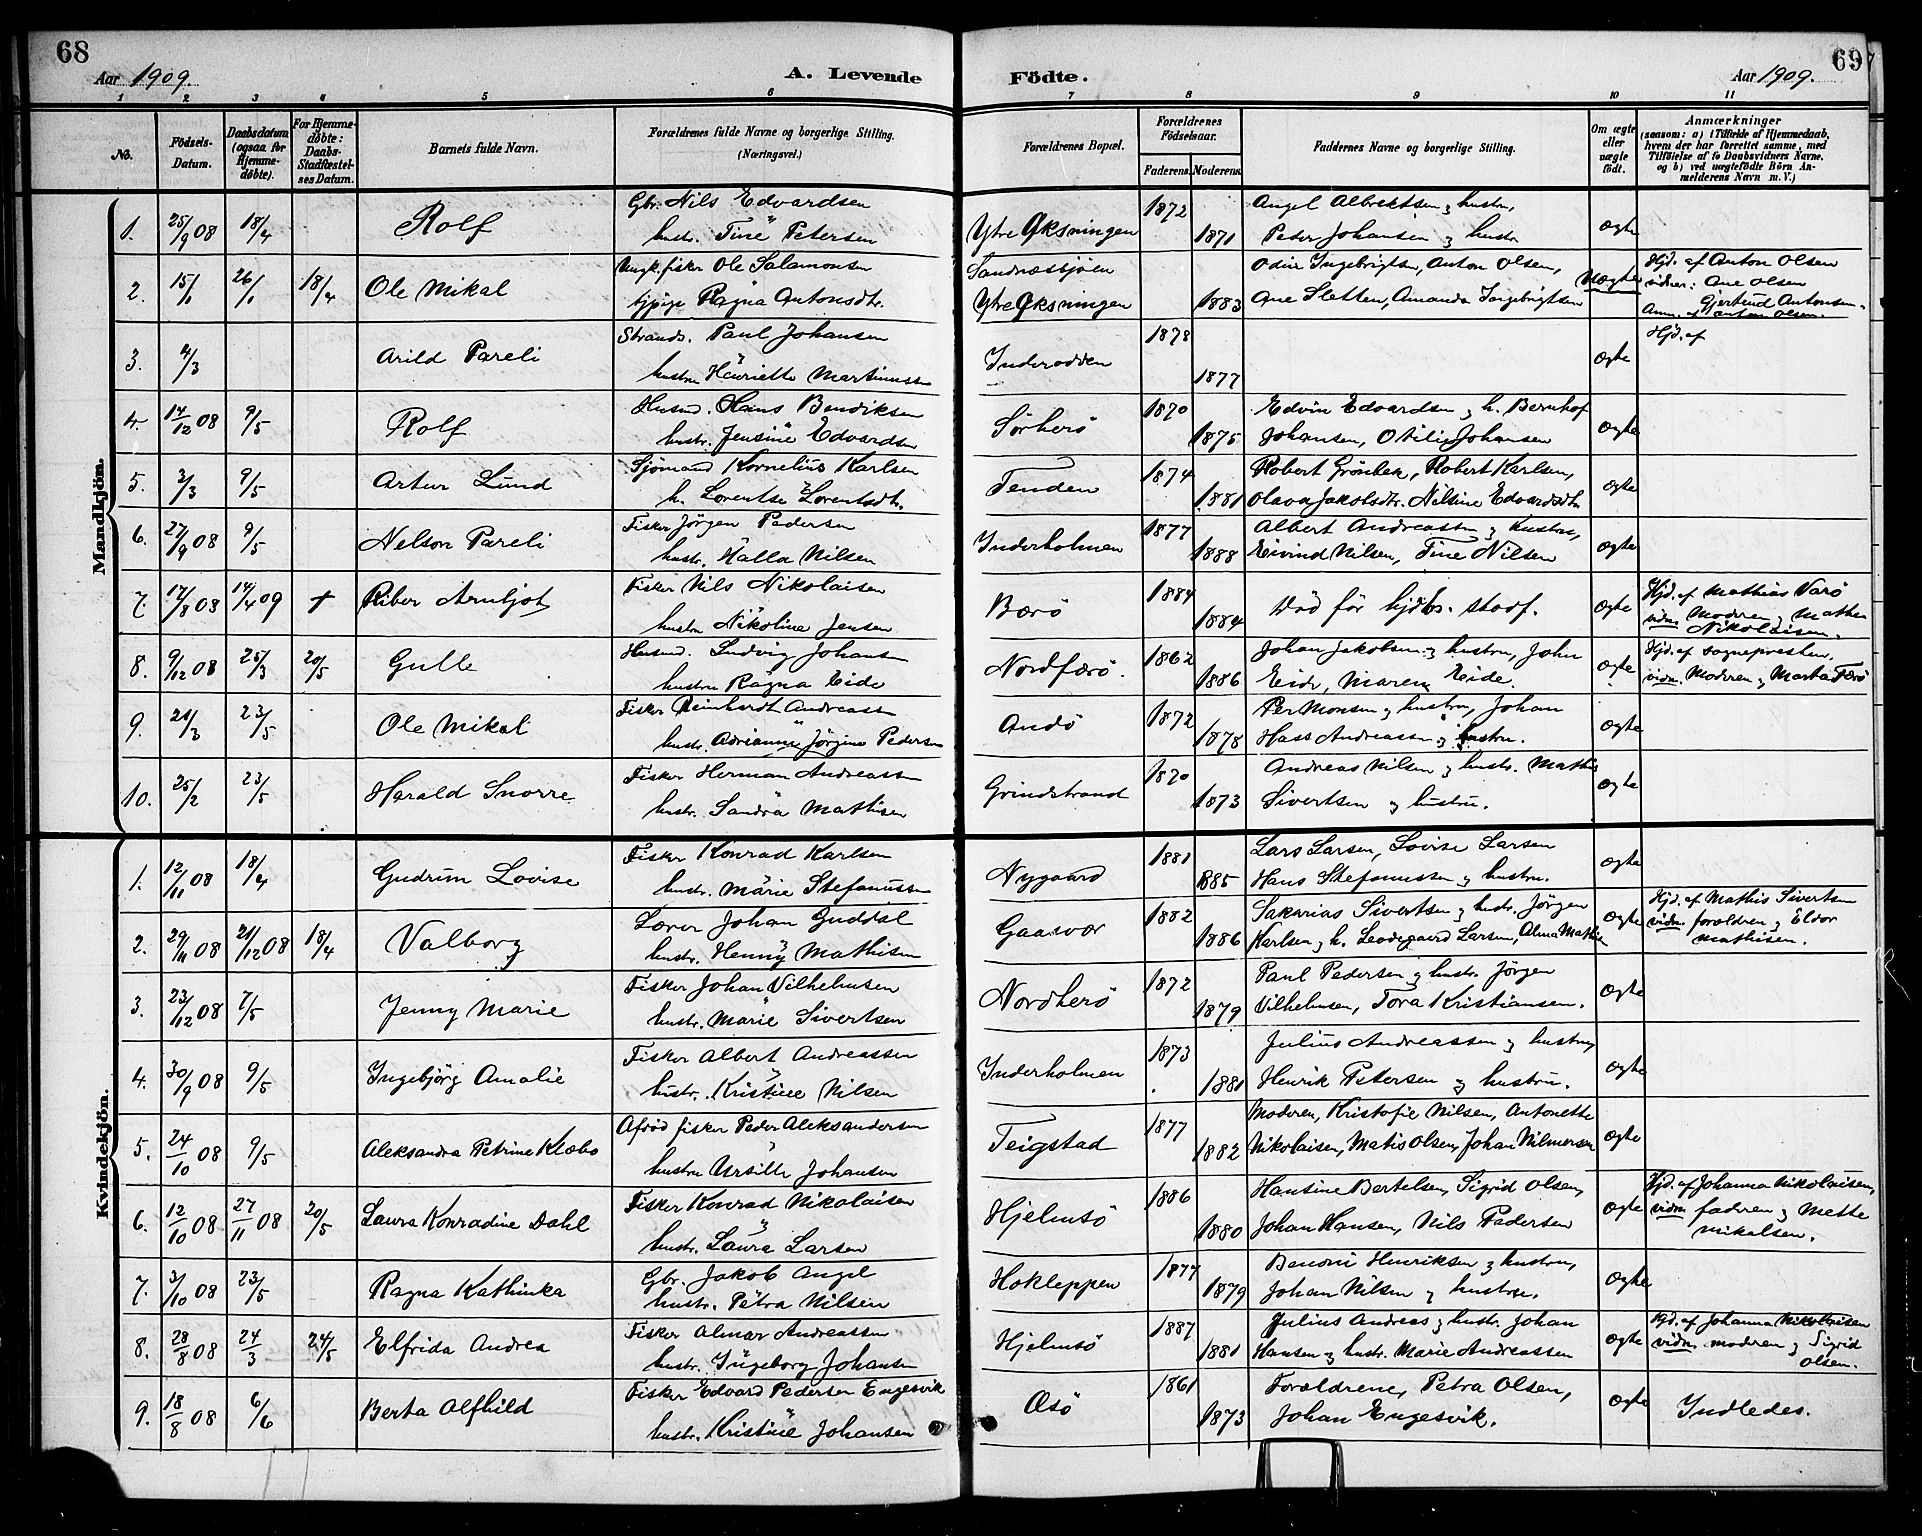 68
Aar 1909.
A. Levende Födte.
Aar 1909.
69
7
1 2 3 4 5 6 7 8 9 10 11
No.
Födsels-Datum.
Daabsdatum (ogsaa for Hjemmedöbte).
For Hjemmedöbte: Daabs-Stadfæstelses Datum.
Barnets fulde Navn.
Forældrenes fulde Navne og borgerlige Stilling.
(Næringsvei.)
Forældrenes Bopæl.
Forældrenes Födselsaar.
Faderens. Moderens.
Faddernes Navne og borgerlige Stilling.
Om ægte eller uægte födt.
Anmærkninger
(saasom: a) i Tilfælde af Hjemmedaab, hvem der har forrettet samme, med Tilföielse af to Daabsvidners Navne, og b) ved uægtefödte Börn Anmelderens Navn m. V.)
Mandkjön.
1. 25/9 08 18/4 Rolf Gbr. Nils Edvardsen
hustr. Tine Petersen Ytre Öksningen 1872 1871 Angel Albrektsen & hustru,
Peder Johansen & hustr ægte
2. 15/1 26/1 18/4 Ole Mikal Ungk. fisker Ole Salamonsen
tjpige Ragna Antonsdtr. Sandnessjöen
Ytre Öksningen 1883 Odin Ingebrigtsen, Anton Olsen,
Ane Sletten, Amanda Ingebrigtsen uægte Hjd. af Anton Olsen
vidner: Ane Olsen
Gjertrud Antonsen.
Anm. af Anton Olsen.
3. 4/3 Arild Pareli Strands. Paul Johansen
hustru Henriette Martinussen Inderodden 1878 1877 ægte Hjd. af
4. 14/12 08 9/5 Rolf Husmd. Hans Bendiksen
hustr. Jensine Edvardsen Sörherö 1870 1875 Edvin Edvardsen & h. Bernhof
Johansen, Otilie Johansen ægte
5. 3/3 9/5 Artur Lund Sjömand Kornelius Karlsen
h. Lorentse Lorentsdtr. Tenden 1874 1881 Robert Grönbek, Robert Karlsen,
Olava Jakobsdtr. Nilsine Edvardsdtr ægte
6. 27/9 08 9/5 Nelson Pareli Fisker Jörgen Pedersen
hustr. Halla Nilsen Inderholmen 1877 1888 Albert Andreassen & hustru,
Eivind Nilsen, Tine Nilsen ægte
7. 17/8 08 14/4 09 + Riber Arnljot Fisker Nils Nikolaisen
hustru Nikoline Jensen Bærö 1884 1884 Död för hjdbs. stadf. ægte Hjd. af Mathias Varö
vidn Moderen & Mathea
Nikolaisen.
8. 9/12 08 25/3 20/5 Gulle Husmd. Ludvig Johansen
hustru Ragna Eide Nordfærö. 1862 1886 Johan Jakobsen & hustru, John
Eide, Maren Eide. ægte Hjd. af sognepresten,
vidn. Moderen & Marta Færö
9. 21/3 23/5 Ole Mikal Fisker Reinhardt Andreassen
hustr. Adrianne Jörgine Pedersen Andö 1872 1878 Per Monsen & hustru, Johan
Hass Andreassen & hustru. ægte
10. 25/2 23/5 Harald Snorre Fisker Herman Andreassen
hustr. Sandra Mathisen Grindstrand 1870 1873 Andreas Nilsen & hustr. Mathis
Sivertsen & hustru. ægte
Kvindekjön.
1. 12/11 08 18/4 Gudrun Lovise Fisker Konrad Karlsen
hustr. Marie Stefanussen Nygaard 1881 1885 Lars Larsen, Lovise Larsen
Hans Stefanussen & hustru. ægte
2. 29/11 08 21/12 08 18/4 Valborg Lærer Johan Guddal
hustr. Henny Mathisen Gaasvær 1882 1886 Sakarias Sivertsen & hustr. Jörgen
Karlsen & h. Leodegaard Larsen, Alma Mathisen ægte Hjd. af Mathis Sivertsen
vidn. forældren & Eldor
Mathisen.
3. 23/12 08 7/5 Jenny Marie Fisker Johan Vilhelmsen
hustr. Marie Sivertsen Nordherö 1872 1879 Paul Pedersen & hustr. Jörgen
Vilhelmsen, Tora Kristiansen. ægte
4. 30/9 08 9/5 Ingebjörg Amalie Fisker Albert Andreassen
hustr. Kristine Nilsen Inderholmen 1873 1881 Julius Andreassen & hustru,
Henrik Petersen & hustru. ægte
5. 24/10 08 9/5 Aleksandra Petrine Klæbo Afdöd fisker Peder Aleksandersen
hustru Ursille Johansen Teigstad 1877 1882 Moderen, Kristofie Nilsen, Antonette
Nikolaisen, Matis Olsen, Johan Vilmersen ægte
6. 12/10 08 27/11 08 20/5 Laura Konradine Dahl Fisker Konrad Nikolaisen
hustr. Laura Larsen Hjelmsö 1886 1880 Hansine Bertelsen, Sigrid Olsen,
Johan Hansen, Nils Pedersen ægte Hjd. af Johanna Nikolaisen,
vidn faderen & Mette
Mikalsen.
7. 3/10 08 23/5 Ragna Kathinka Gbr. Jakob Angel
hustr. Petra Nilsen Hokleppen 1877 1879 Benoni Henriksen & hustru,
Johan Nilsen & hustru. ægte
8. 28/8 08 24/3 24/5 Elfrida Andrea Fisker Almar Andreassen
hustr. Ingeborg Johansen Hjelmsö 1887 1881 Julius Andreas & hustr. Johan
Hansen & hustr. Marie Andreassen ægte Hjd. af Johanna Nikolaisen
vidn moderen & Sigrid
Olsen.
9. 18/8 08 6/6 Berta Alfhild Fisker Edvard Pedersen Engesvik
hustr. Kristine Johansen Æsö 1861 1873 Forældrene, Petra Olsen,
Johan Engesvik. ægte Indledes.